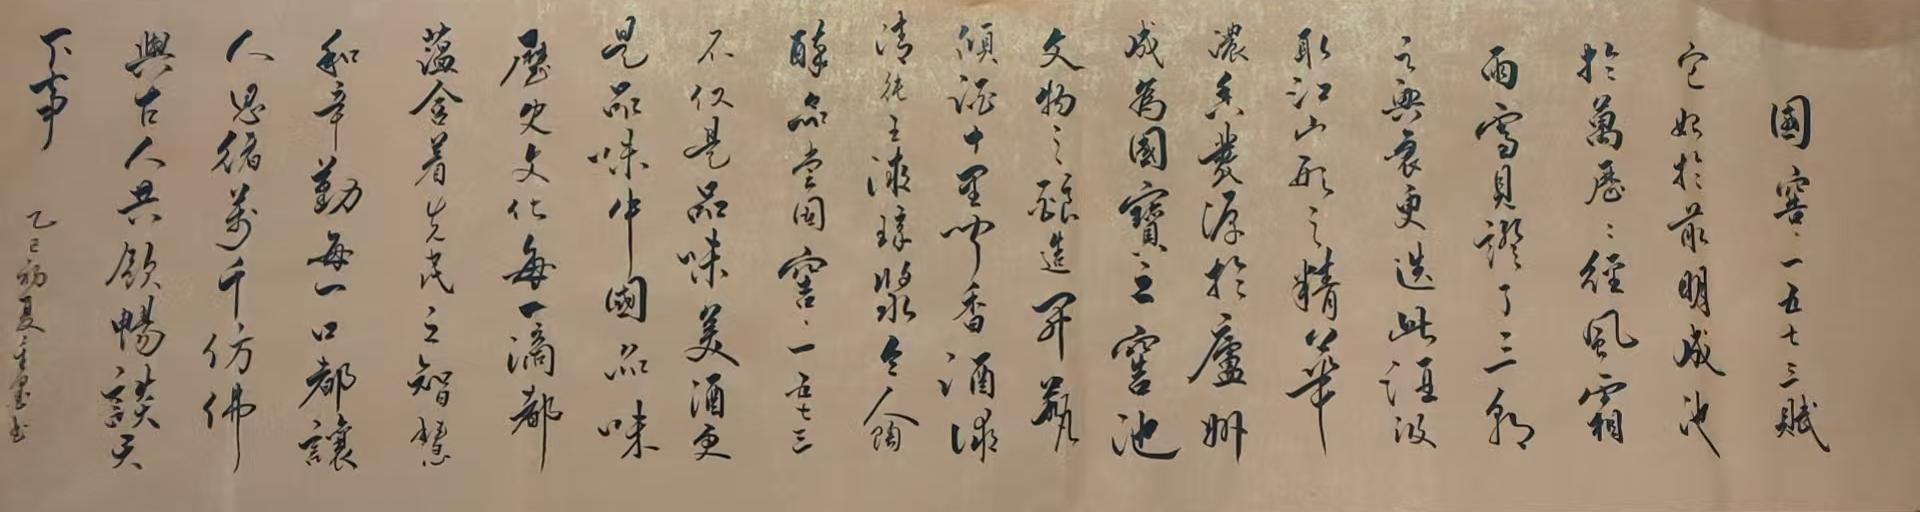 國窖·一五七三賦
它始於前明成池
於萬歷〻經風霜
雨雪見證了三朝
之興衰更迭此誕汲
取江山形之精華
濃香發源於廬州
成為國寶之窖池
文物之釀造開瓶
傾酒十里聞香酒液
清純玉液瓊漿令人陶
醉品嘗國窖·一五七三
不仅是品味美酒更
是品味中國品味
歷史文化每一滴都
蕴含着先民之智慧
和辛勤每一口都讓
人思緒萬千仿佛
與古人共飲暢談天
下事
乙巳初夏書